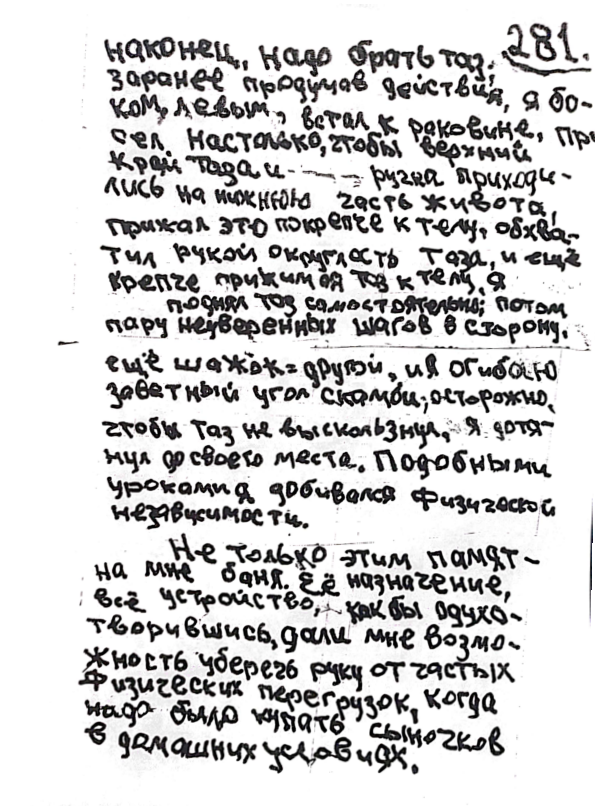 281.
наконец, надо брать таз,
заранее продумав действия, я бо-
ком, левым, встал к раковине, при
сел настолько, чтобы верхний
край таза и ручка приходи-
лись на нижнюю часть живота,
прижал это покрепче к телу, обхва-
тил рукой округлость таза, и ещё
крепче прижимая таз к телу, я
поднял таз самостоятельно; потом
пару неуверенных шагов в сторону,
ещё шажок = другой, и я огибаю
заветный угол скамьи; осторожно,
чтобы таз не выскользнул, я дотя-
нул до своего места. Подобными
уроками я добивался физической
независимости.
Не только этим памят-
на мне баня. Её назначение,
всё устройство, как бы одухо-
творившись, дали мне возмо-
жность уберечь руку от частых
физических перегрузок, когда
надо было купать сыночков
в домашних условиях.